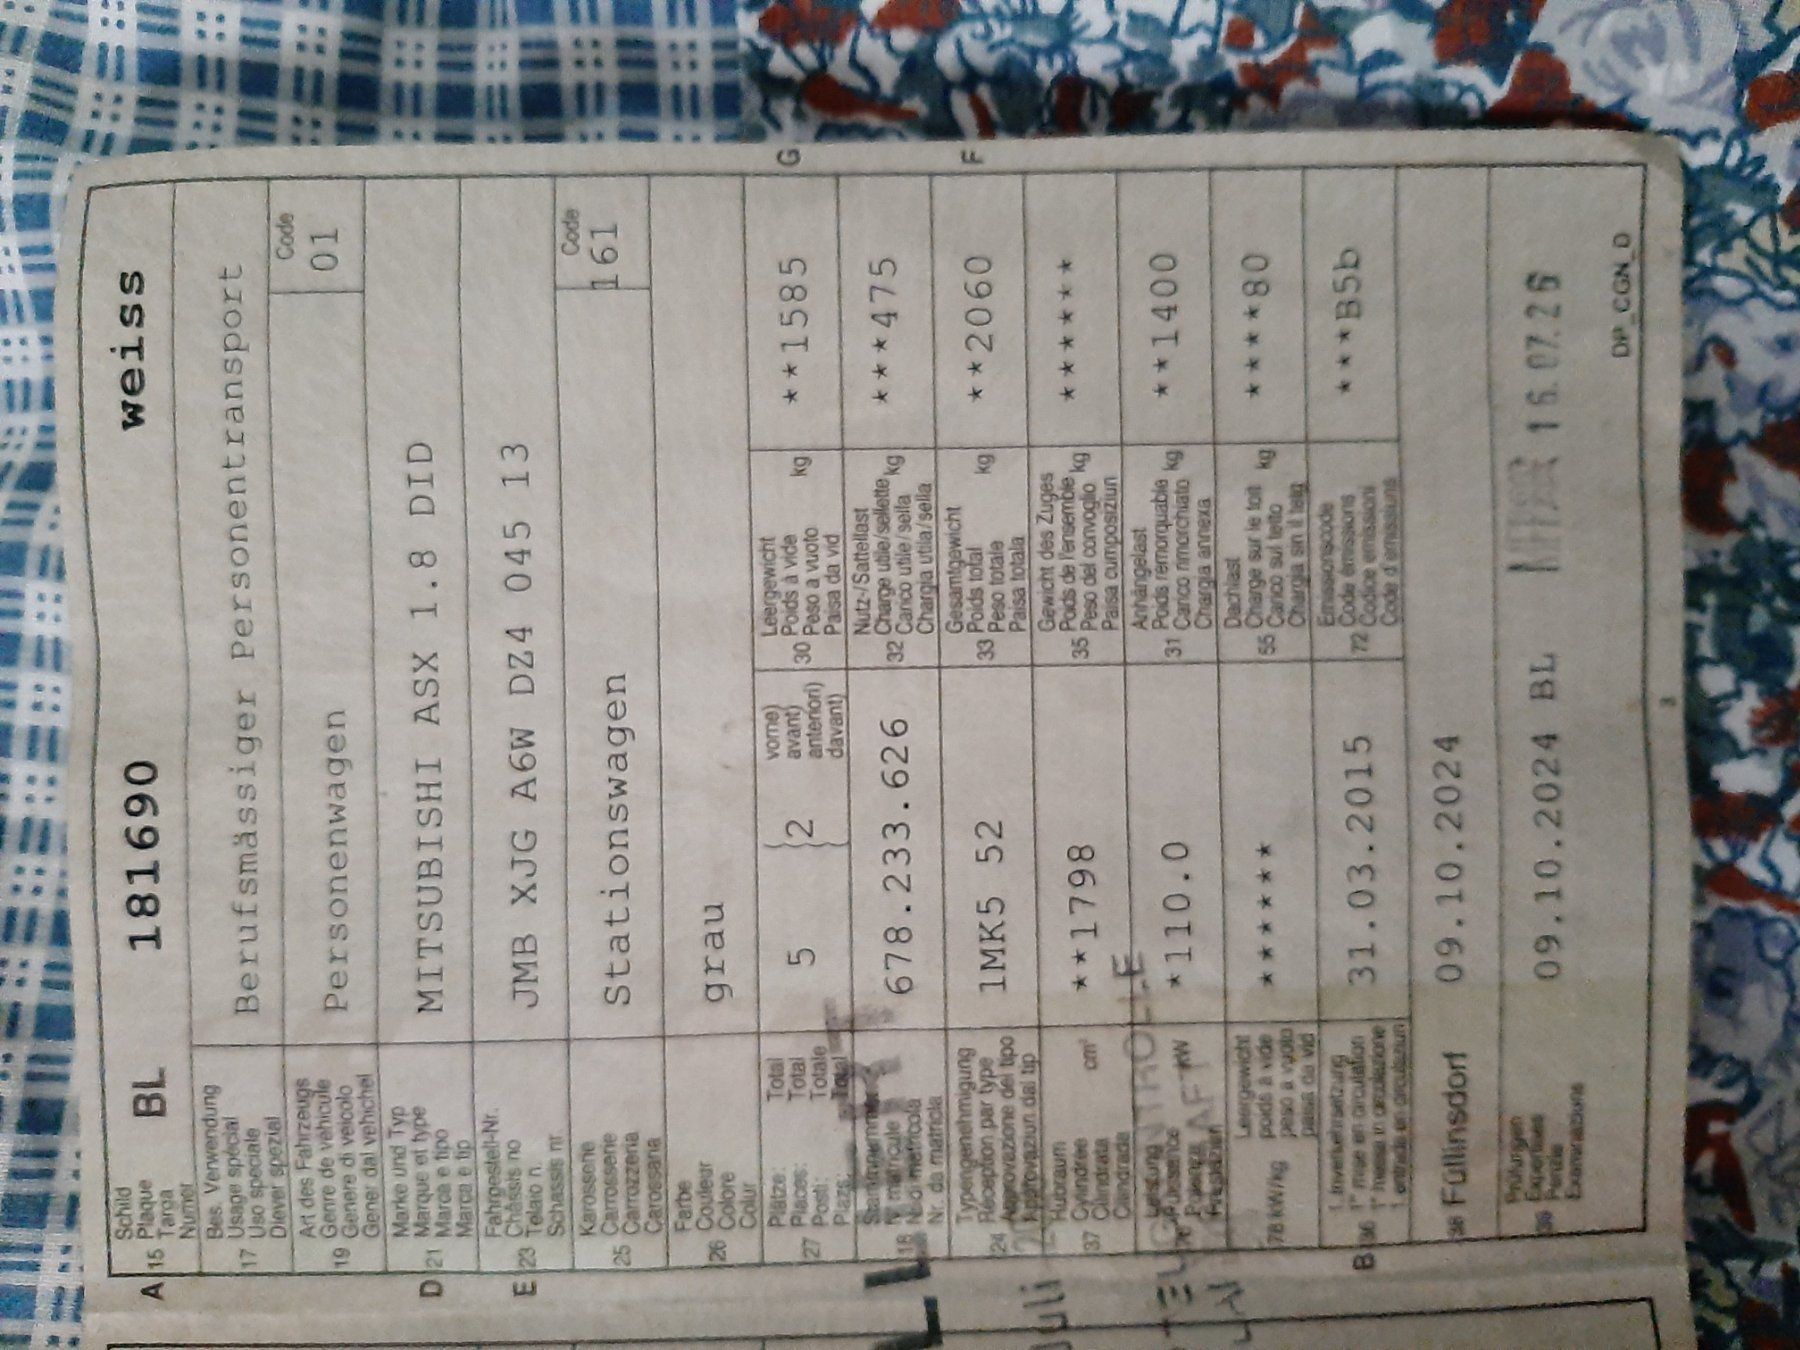 A 15 Schild Plaque Targa Numer BL 181690 weiss
17 Bes. Verwendung Usage spécial Uso speciale Diever spezial Berufsmässiger Personentransport
19 Art des Fahrzeugs Genre de véhicule Genere di veicolo Gener dal vehichel Personenwagen Code 01
D 21 Marke und Typ Marque et type Marca e tipo Marca e tip MITSUBISHI ASX 1.8 DID
E 23 Fahrgestell-Nr. Châssis no Telaio n. Schassis nr. JMB XJG A6W DZ4 045 13
25 Karosserie Carrosserie Carrozzeria Carossaria Stationswagen Code 161
26 Farbe Couleur Colore Colur grau
27 Plätze: Places: Posti: Plazs: Total Total Totale Total 5 2 vorne) avant) anteriori) davant)
30 Leergewicht Poids à vide Peso a vuoto Paisa da vid kg **1585 G
18 Stammnummer N° matricule No di matricola Nr. da matricla 678.233.626
32 Nutz-/Sattellast Charge utile/sellette Carico utile/sella Chargia utila/sella kg ***475
24 Typengenehmigung Réception par type Approvazione del tipo Approvaziun dal tip 1MK5 52
33 Gesamtgewicht Poids total Peso totale Paisa totala kg **2060 F
37 Hubraum Cylindrée Cilindrata Cilindrada cm³ **1798
35 Gewicht des Zuges Poids de l'ensemble Peso del convoglio Paisa cumposiziun kg ******
76 Leistung Puissance Potenza kW *110.0
31 Anhängelast Poids remorquable Carico rimorchiato Chargia annexa kg **1400
78 kW/kg Leergewicht poids à vide peso a vuoto paisa da vid ******
55 Dachlast Charge sur le toit Carico sul tetto Chargia sin il tetg kg ****80
B 36 1. Inverkehrsetzung 1re mise en circulation 1a messa in circolazione 1. entrada en circulaziun 31.03.2015
72 Emissionscode Code émissions Codice emissioni Code d'emissiuns ***B5b
38 Füllinsdorf 09.10.2024
39 Prüfungen Expertises Perizie Examinaziuns 09.10.2024 BL 16.07.26
DP_CGN_D
3